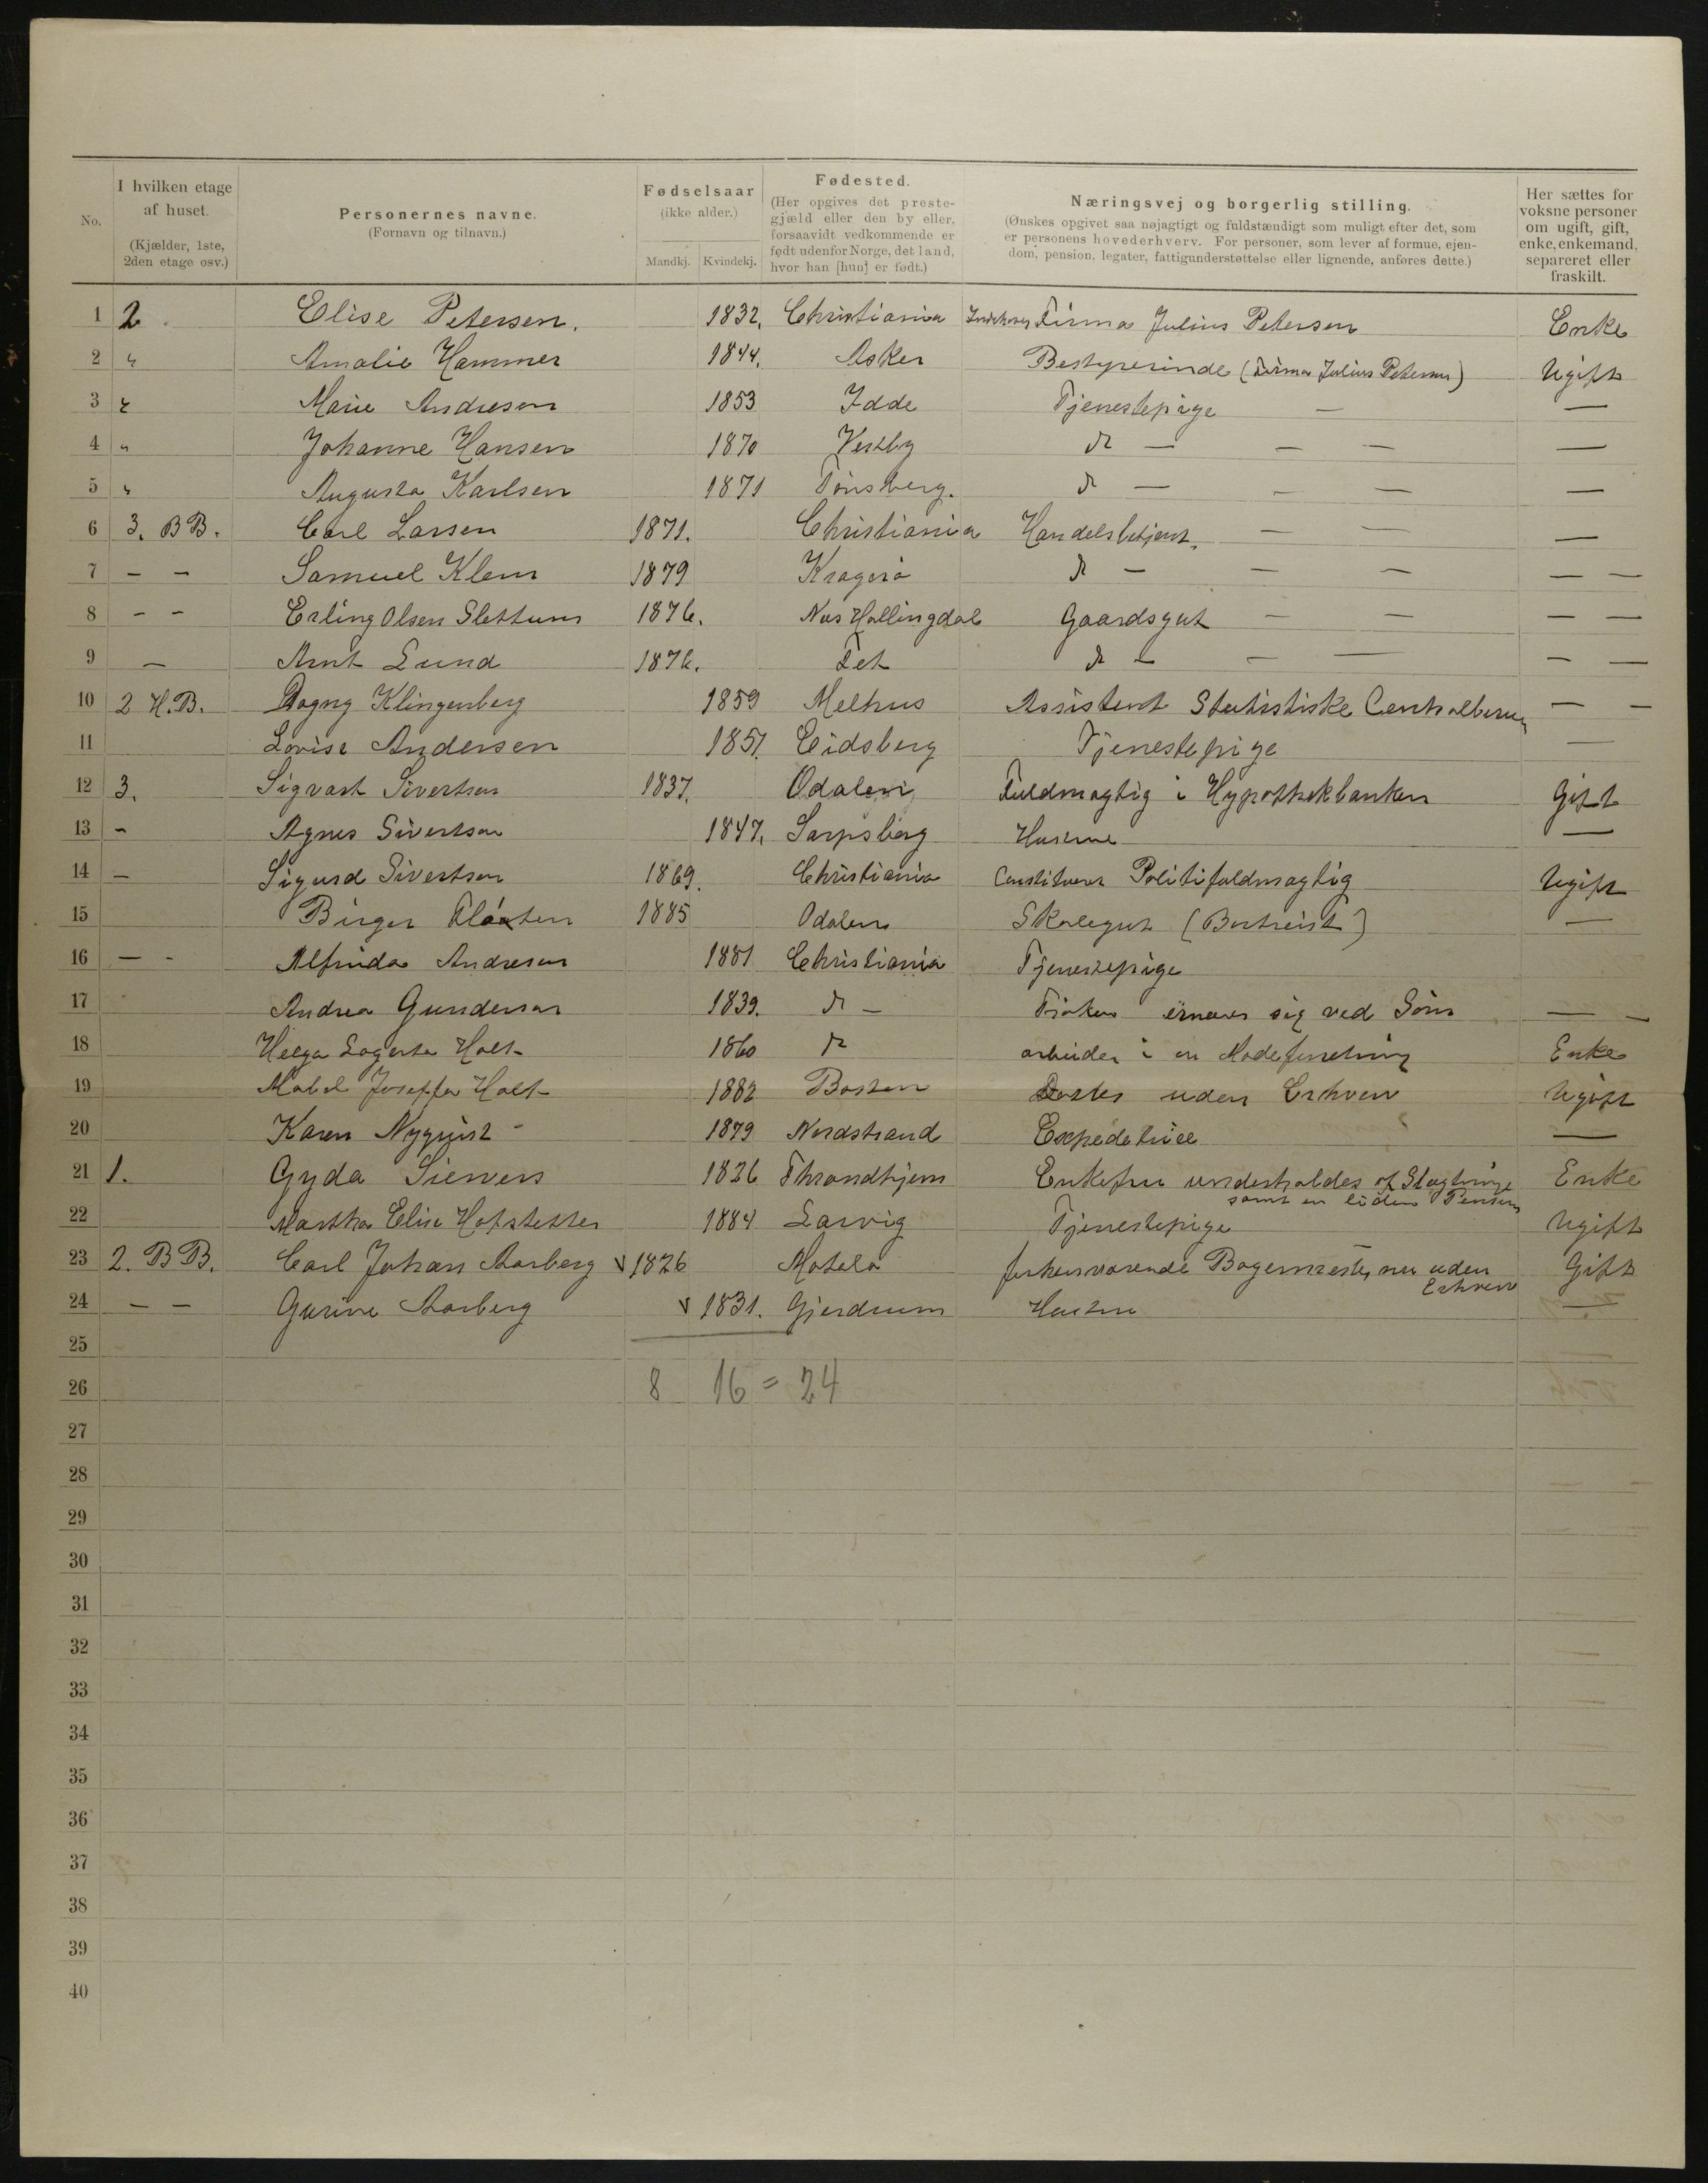 No.
I hvilken etage af huset.
(Kjælder, 1ste, 2den etage osv.)
Personernes navne.
(Fornavn og tilnavn.)
Fødselsaar
(ikke alder.)
Mandkj. Kvindekj.
Fødested.
(Her opgives det preste-
gjæld eller den by eller,
forsaavidt vedkommende er
født udenfor Norge, det land,
hvor han [hun] er født.)
Næringsvej og borgerlig stilling.
(Ønskes opgivet saa nøjagtigt og fuldstændigt som muligt efter det, som
er personens hovederhverv. For personer, som lever af formue, ejen-
dom, pension, legater, fattigunderstøttelse eller lignende, anføres dette.)
Her sættes for
voksne personer
om ugift, gift,
enke, enkemand,
separeret eller
fraskilt.
1 2 Elise Petersen. 1832. Christiania Indehaver Firma Julius Petersen Enke
2 " Amalie Hammer 1844. Asker Bestyrerinde (Firma Julius Petersen) Ugift
3 " Marie Andresen 1853 Idde Tjenestepige — —
4 " Johanne Hansen 1870 Vestby do — — — —
5 " Augusta Karlsen 1871 Tönsberg. do — — — —
6 3. BB. Carl Larsen 1871. Christiania Handelsbetjent. — — —
7 — — Samuel Klem 1879 Kragerö do — — — — —
8 — — Erling Olsen Slettum 1876. Nes Hallingdal Gaardsgut — — — —
9 — Arnt Lund 1876. Fet do — — — — —
10 2 H.B. Dagny Klingenberg 1859 Melhus Assistent Statistiske Centralbureau — —
11 Lovise Andersen 1851. Eidsberg Tjenestepige —
12 3. Sigvart Sivertsen 1837. Odalen Fuldmægtig i Hypothekbanken Gift
13 — Agnes Sivertsen 1847. Sarpsborg Hustru —
14 — Sigurd Sivertsen 1869. Christiania Constitueret Politifuldmægtig Ugift
15 Birger 1885 Odalen Skolegut (Bortreist) —
16 — - Alfrida Andresen 1881 Christiania Tjenestepige
17 Andrea Gundersen 1839. do — Fröken ernærer sig ved Söm — —
18 Helga Lagerta Holt 1860 do arbeider i en Modeforretning Enke
19 Mabel Josepha Holt 1882 Boston Datter uden Erhverv Ugift
20 Karen Nyquist 1879 Nordstrand Expeditrice —
21 1. Gyda Sievers 1826 Throndhjem Enkefru underholdes af Slægtninge Enke
samt en liden Pension
22 Martha Elise Hofstetter 1884 Larvig Tjenestepige Ugift
23 2. BB. Carl Johan Aarberg v 1826 Motala forhenværende Bagermester, nu uden Gift
Erhverv
24 — — Gurine Aarberg v 1831. Gjerdrum Hustru —
25
26 8 16 = 24
27
28
29
30
31
32
33
34
35
36
37
38
39
40